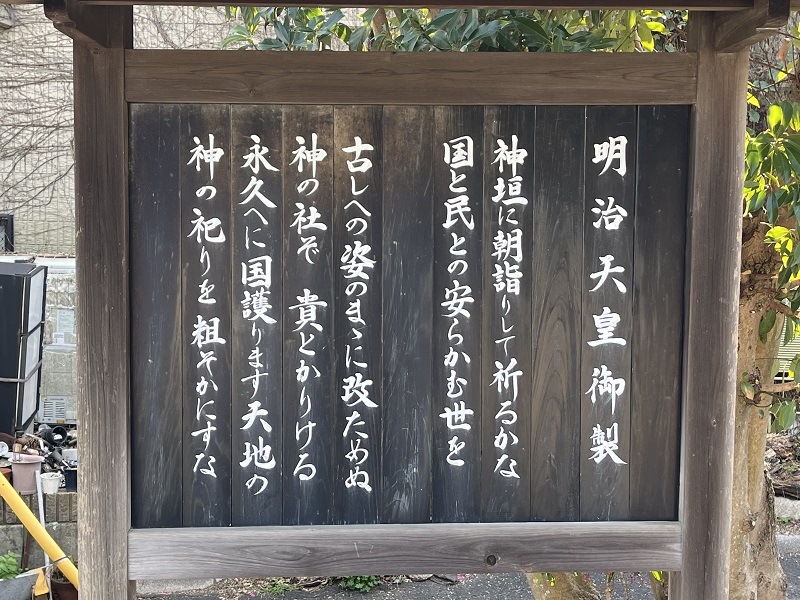 明治天皇御製
神垣に朝詣りして祈るかな
国と民との安らかむ世を
古しへの姿のまゝに改ためぬ
神の社ぞ 貴とかりける
永久へに国護ります天地の
神の祀りを粗そかにすな